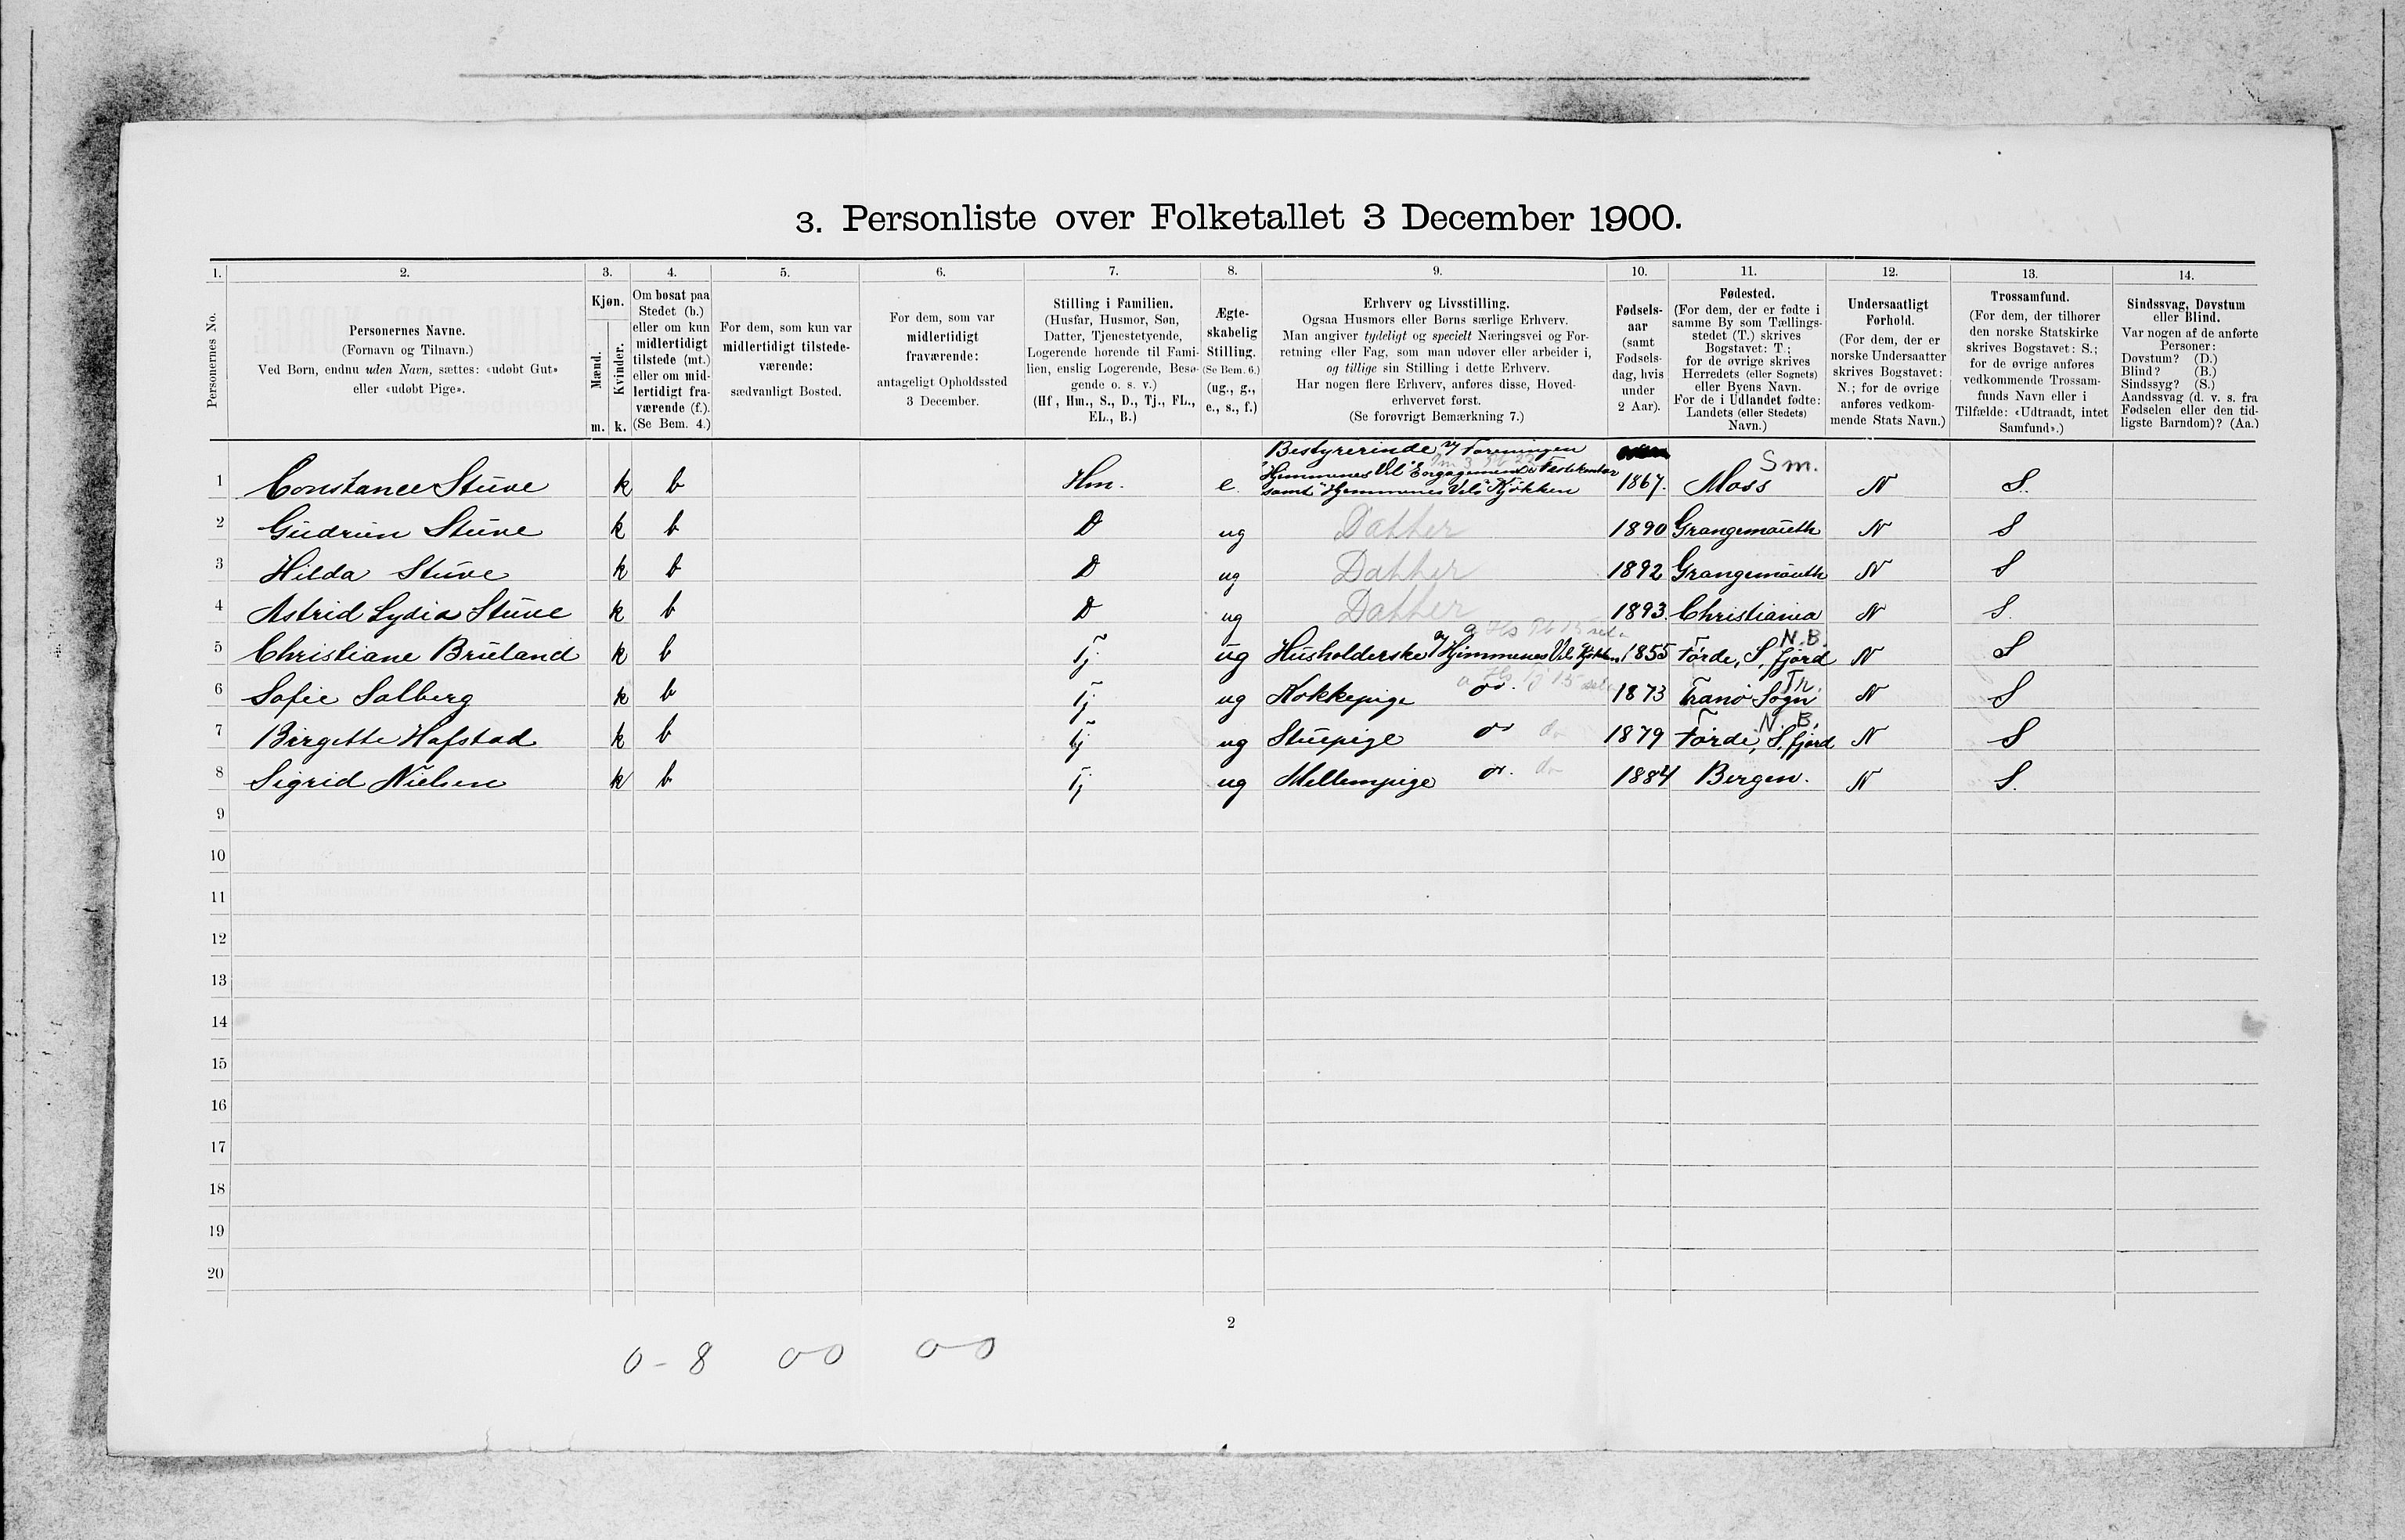 3. Personliste over Folketallet 3 December 1900.
1. 2. 3. 4. 5. 6. 7. 8. 9. 10. 11. 12. 13. 14.
Personernes No.
Personernes Navne.
(Fornavn og Tilnavn.)
Ved Børn, endnu uden Navn, sættes: «udøbt Gut»
eller «udøbt Pige».
Kjøn.
Mænd. Kvinder.
m. k.
Om bosat paa
Stedet (b.)
eller om kun
midlertidigt
tilstede (mt.)
eller om mid-
lertidigt fra-
værende (f.).
(Se Bem. 4.)
For dem, som kun var
midlertidigt tilstede-
værende:
sædvanligt Bosted.
For dem, som var
midlertidigt
fraværende:
antageligt Opholdssted
3 December.
Stilling i Familien.
(Husfar, Husmor, Søn,
Datter, Tjenestetyende,
Logerende hørende til Fami-
lien, enslig Logerende, Besø-
gende o. s. v.)
(Hf., Hm., S., D., Tj., FL.,
EL., B.)
Ægte-
skabelig
Stilling.
(Se Bem. 6.)
(ug., g.,
e., s., f.)
Erhverv og Livsstilling.
Ogsaa Husmors eller Børns særlige Erhverv.
Man angiver tydeligt og specielt Næringsvei og For-
retning eller Fag, som man udøver eller arbeider i,
og tillige sin Stilling i dette Erhverv.
Har nogen flere Erhverv, anføres disse, Hoved-
erhvervet først.
(Se forøvrigt Bemærkning 7.)
Fødsels-
aar
(samt
Fødsels-
dag, hvis
under
2 Aar).
Fødested.
(For dem, der er fødte i
samme By som Tællings-
stedet (T.) skrives
Bogstavet: T.;
for de øvrige skrives
Herredets (eller Sognets)
eller Byens Navn.
For de i Udlandet fødte:
Landets (eller Stedets)
Navn.)
Undersaatligt
Forhold.
(For dem, der er
norske Undersaatter
skrives Bogstavet:
N.; for de øvrige
anføres vedkom-
mende Stats Navn.)
Trossamfund.
(For dem, der tilhører
den norske Statskirke
skrives Bogstavet: S.;
for de øvrige anføres
vedkommende Trossam-
funds Navn eller i
Tilfælde: «Udtraadt, intet
Samfund».)
Sindssvag, Døvstum
eller Blind.
Var nogen af de anførte
Personer:
Døvstum? (D.)
Blind? (B.)
Sindssyg? (S.)
Aandssvag (d. v. s. fra
Fødselen eller den tid-
ligste Barndom)? (Aa.)
Bestyrerinde af Foreningen
"Hjemmenes Vel" Engagements & Fæstekontor Sm.
samt "Hjemmenes Vels" Kjøkken
1 Constance Stuve k b Hm. e. 1867. Moss N S.
2 Gudrun Stuve k b D ug Datter 1890 Grangemouth N S
3 Hilda Stuve k b D ug Datter 1892 Grangemouth N S
4 Astrid Lydia Stuve k b D ug Datter 1893. Christiania N S.
N.B.
5 Christiane Bruland k b Tj ug Husholderske af Hjemmenes Vels Kjøkken 1855 Førde, S. fjord N S
Tr.
6 Sofie Solberg k b Tj ug Kokkepige do. 1873 Tranø Sogn N S
N.B.
7 Birgette Hafstad k b Tj ug Stuepige do do 1879 Førde, S. fjord N S
8 Sigrid Nielsen k b Tj ug Mellempige do. do 1884 Bergen. N S.
9
10
11
12
13
14
15
16
17
18
19
20
2
0-8 00 00